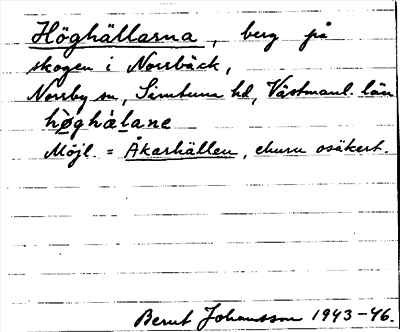 Höghällarna, berg på
skogen i Norrbäck,
Norrby sn, Simtuna hd, Västmanl. län
hø̀ghálane
Möjl. = Åkarhällen, ehuru osäkert.
Bernt Johansson 1943-46.